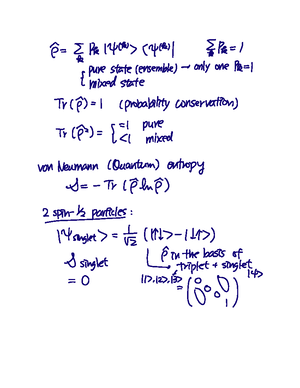 ρ̂ = Σ_k P_k |ψ^(k)> <ψ^(k)|   Σ_k P_k = 1
{ pure state (ensemble) → only one P_k = 1
mixed state
Tr(ρ̂) = 1 (probability conservation)
Tr(ρ̂²) = { =1 pure
<1 mixed
von Neumann (Quantum) entropy
S = - Tr(ρ̂ ln ρ̂)
2 spin-1/2 particles:
|ψ_singlet> = 1/√2 (|↑↓> - |↓↑>)
S_singlet
= 0
ρ̂ in the basis of
triplet + singlet
|1>,|2>,|3> |4>
= (0 0 0 0 1)